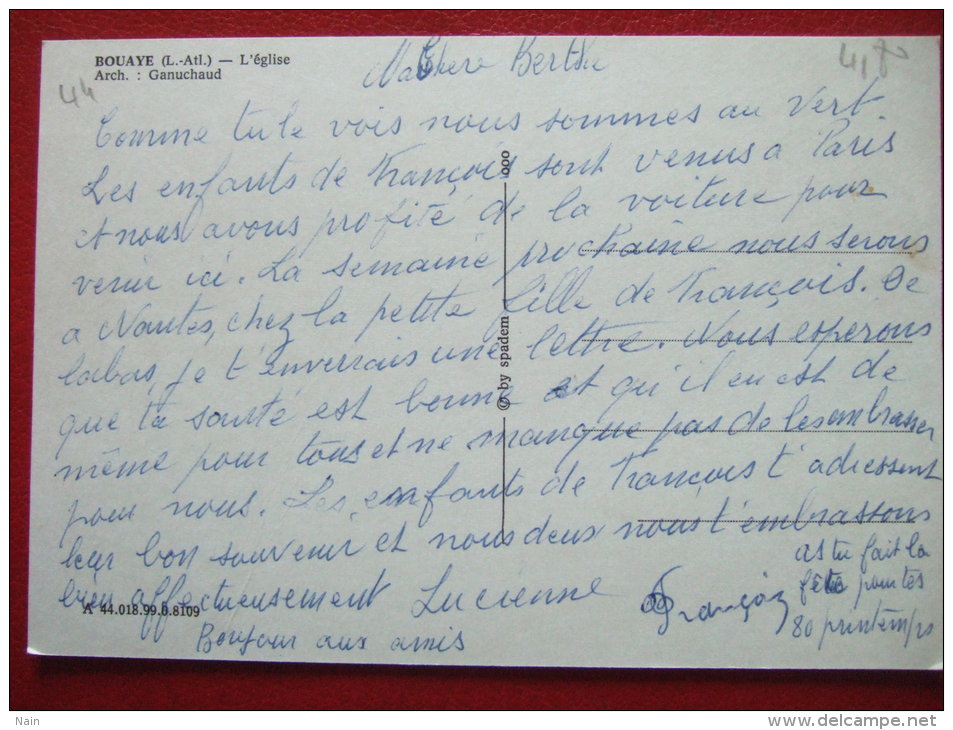 BOUAYE (L.-Atl.) — L'église
Arch. : Ganuchaud
44
Ma Chere Berthe
Comme tu le vois nous sommes au vert
Les enfants de François sont venus a Paris
et nous avons profité de la voiture pour
venir ici. La semaine prochaine nous serons
a Nantes, chez la petite fille de François. De
labas, je t'enverrais une lettre. Nous esperons
que ta santé est bonne et qu'il en est de
même pour tous et ne manque pas de les embrasser
pour nous. Les enfants de François t'adressent
leur bon souvenir et nous deux nous t'embrassons
bien affectueusement Lucienne François
Bonjour aux amis
as tu fait la
fête pour tes
80 printemps
A 44.018.99.0.8109
@ by spadem ooo
Nain
http://www.delcampe.net